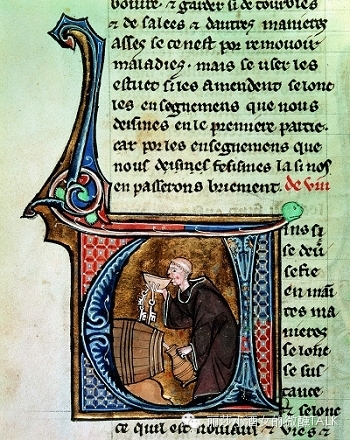 & garder si de tourbles
& de salees & dautres manieres
asses se ce nest por remouvoir
maladies . mais se user les
estuet si les amendent selonc
les enseignemens que nous
desimes en le premiere partie .
car por les enseignemens que
nous desimes fesismes la si nos
en passerons briement . de vin
ins si
se
en
ma
nieres
selonc
se sus
tance
& selonc
ce quil est nouiaus & vies &
TALK